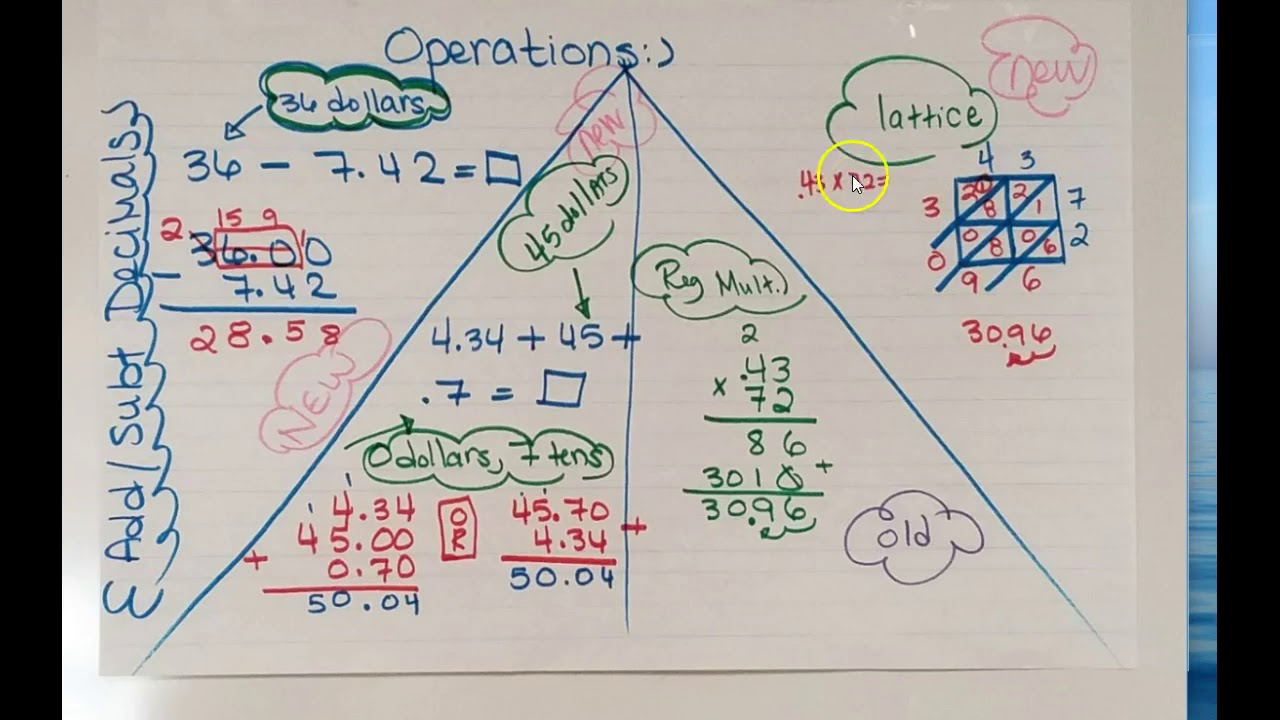 Operations:)
& Add/Subt Decimals)
36 dollars
36 - 7.42 = □
15 9
2
36.00
- 7.42
28.58
New
new
45 dollars
4.34 + 45 +
.7 = □
0 dollars, 7 tens
4.34
45.00
+ 0.70
50.04
OR
45.70
4.34 +
50.04
Reg Mult.)
2
.43
x 72
86
3010 +
30.96
old
new
lattice
4 3
3 2 1 8 2 1 7
0 0 8 0 6 2
9 6
30.96